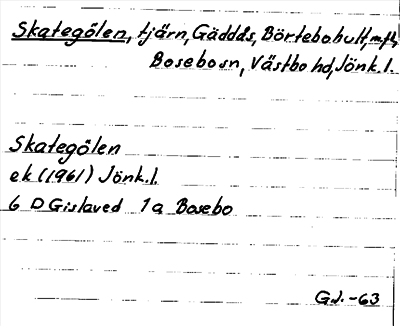 Skategölen, tjärn, Gäddås, Börtebohult, m.fl.,
Bosebo sn, Västbo hd, Jönk. l.
Skategölen
ek (1961) Jönk. l.
6 D Gislaved 1 a Bosebo
G.J. -63